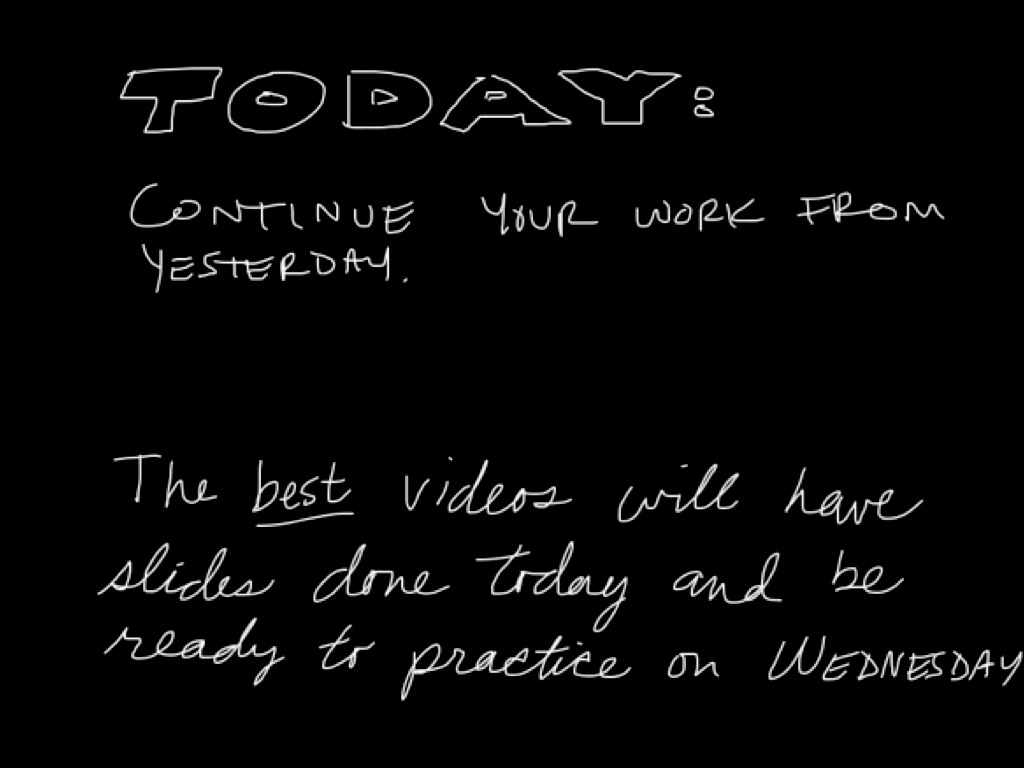 TODAY:
CONTINUE YOUR WORK FROM
YESTERDAY.
The best videos will have
slides done today and be
ready to practice on WEDNESDAY